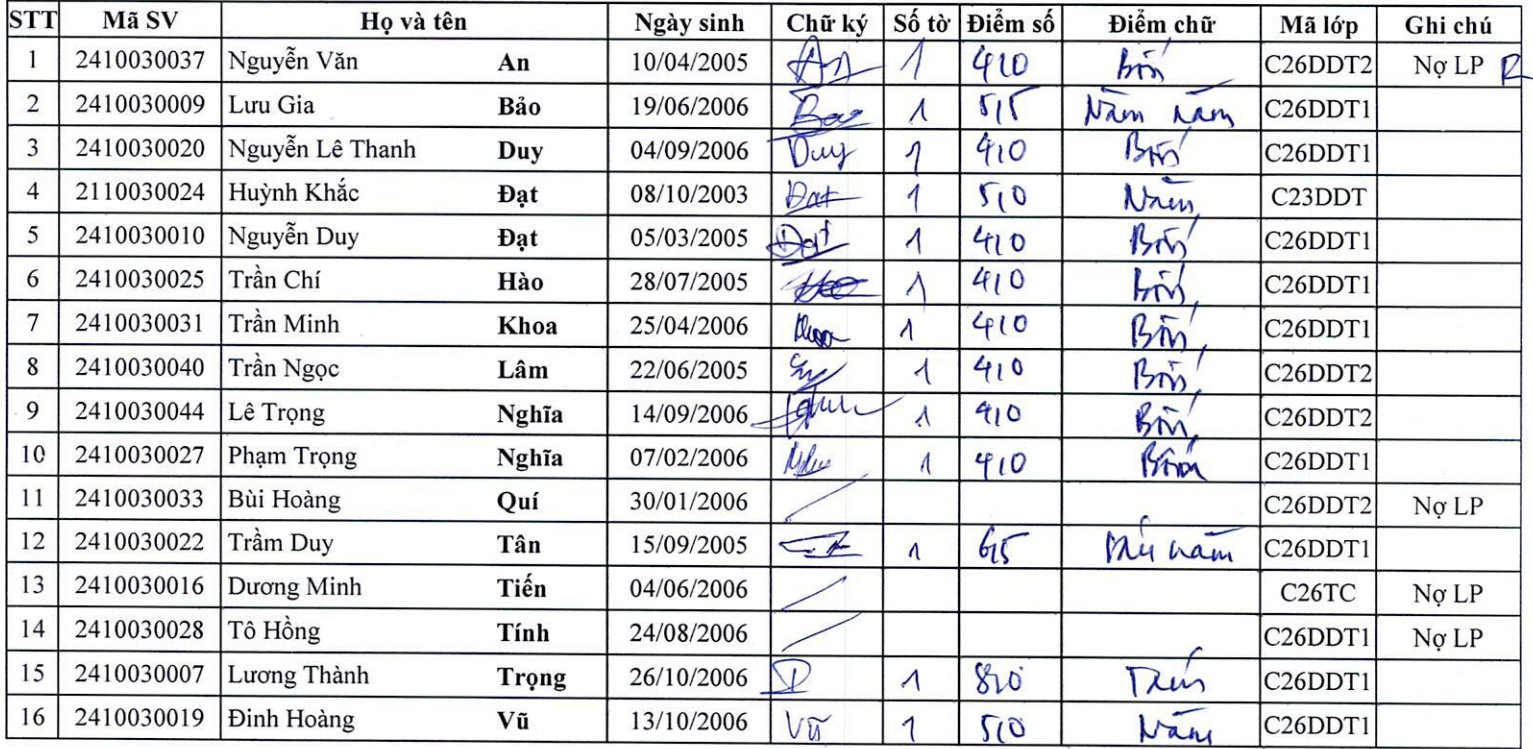 STT Mã SV Họ và tên Ngày sinh Chữ ký Số tờ Điểm số Điểm chữ Mã lớp Ghi chú
1 2410030037 Nguyễn Văn An 10/04/2005 An 1 4,0 Bốn C26DDT2 Nợ LP
2 2410030009 Lưu Gia Bảo 19/06/2006 Bao 1 5,5 Năm năm C26DDT1
3 2410030020 Nguyễn Lê Thanh Duy 04/09/2006 Duy 1 4,0 Bốn C26DDT1
4 2110030024 Huỳnh Khắc Đạt 08/10/2003 Đat 1 5,0 Năm C23DDT
5 2410030010 Nguyễn Duy Đạt 05/03/2005 Đạt 1 4,0 Bốn C26DDT1
6 2410030025 Trần Chí Hào 28/07/2005 1 4,0 Bốn C26DDT1
7 2410030031 Trần Minh Khoa 25/04/2006 Khoa 1 4,0 Bốn C26DDT1
8 2410030040 Trần Ngọc Lâm 22/06/2005 1 4,0 Bốn C26DDT2
9 2410030044 Lê Trọng Nghĩa 14/09/2006 1 4,0 Bốn C26DDT2
10 2410030027 Phạm Trọng Nghĩa 07/02/2006 1 4,0 Bốn C26DDT1
11 2410030033 Bùi Hoàng Quí 30/01/2006 C26DDT2 Nợ LP
12 2410030022 Trầm Duy Tân 15/09/2005 1 6,5 Sáu năm C26DDT1
13 2410030016 Dương Minh Tiến 04/06/2006 C26TC Nợ LP
14 2410030028 Tô Hồng Tính 24/08/2006 C26DDT1 Nợ LP
15 2410030007 Lương Thành Trọng 26/10/2006 1 8,0 Tám C26DDT1
16 2410030019 Đinh Hoàng Vũ 13/10/2006 Vũ 1 5,0 Năm C26DDT1